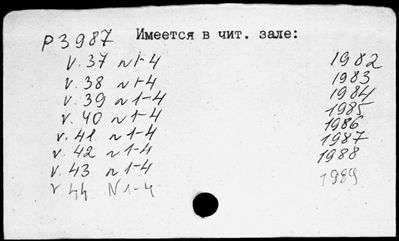 Р3987 Имеется в чит. зале:
v. 37 n 1-4 1982
v. 38 n 1-4 1983
v. 39 n 1-4 1984
v. 40 n 1-4 1985
v. 41 n 1-4 1986
v. 42 n 1-4 1987
v. 43 n 1-4 1988
v 44 N 1-4 1989